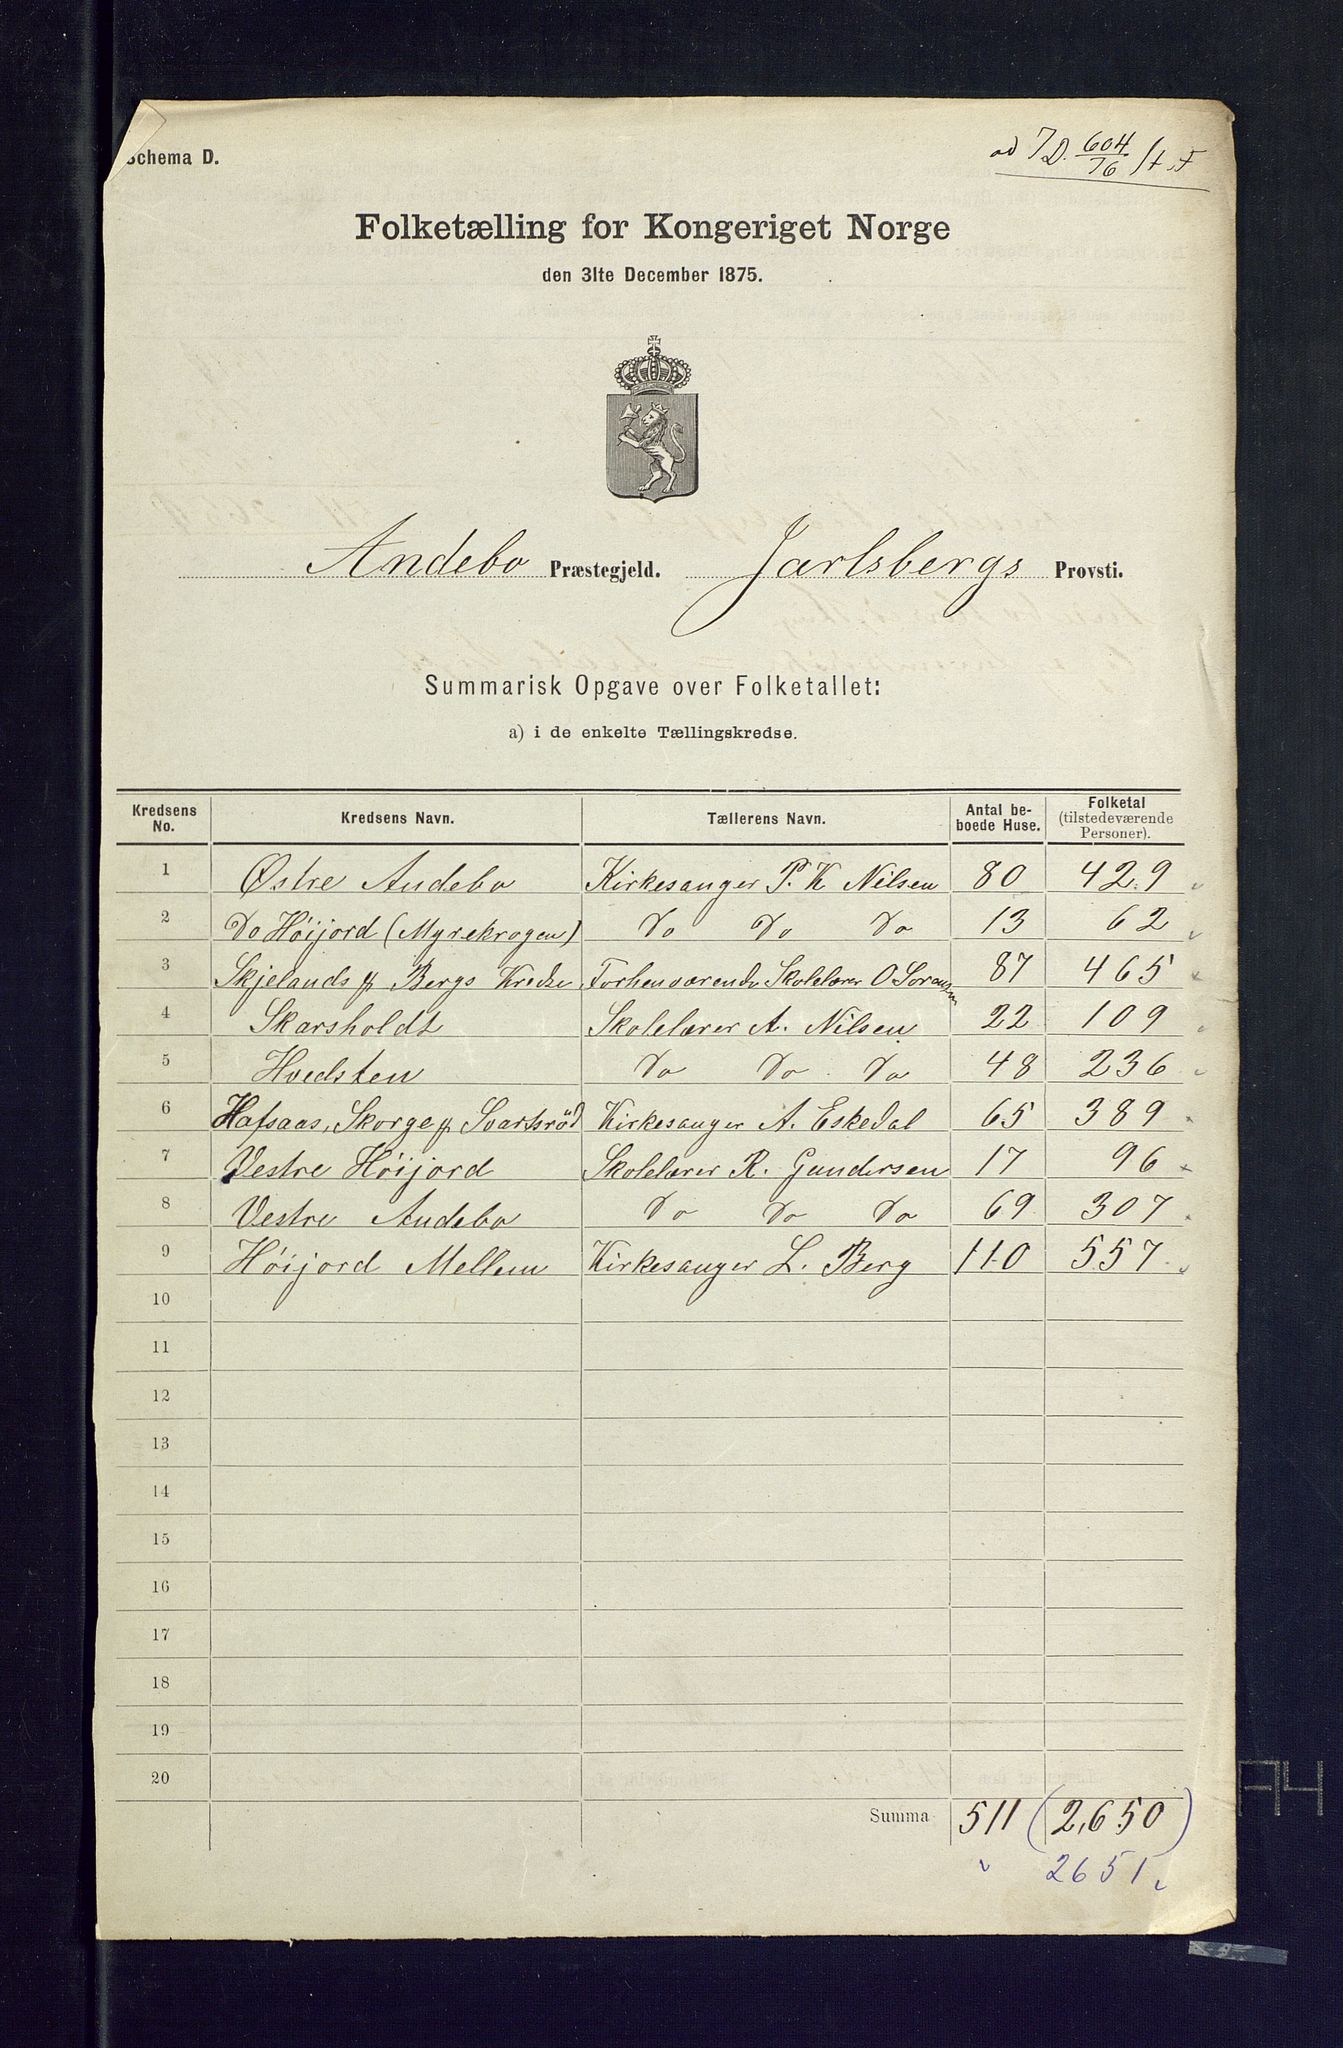 Schema D.
ad JD. 604/76 St. F
Folketælling for Kongeriget Norge
den 31te December 1875.
Andebo Præstegjeld. Jarlsbergs Provsti.
Summarisk Opgave over Folketallet:
a) i de enkelte Tællingskredse.
Kredsens No. Kredsens Navn. Tællerens Navn. Antal beboede Huse. Folketal (tilstedeværende Personer).
1 Østre Andebo Kirkesanger P. K Nilsen 80 429
2 Do Høijord (Myrekrogen) Do Do Do 13 62
3 Skjelands og Bergs Kredse Forhenværende Skolelærer O Sørensen 87 465
4 Skarsholdt Skolelærer A. Nilsen 22 109
5 Hvedsten Do Do Do 48 236
6 Hafsaas, Skorge og Svartsröd Kirkesanger A. Eskedal 65 389
7 Vestre Høijord Skolelærer R. Gundersen 17 96
8 Vestre Andebo Do Do Do 69 307
9 Høijord Mellem Kirkesanger L. Berg 110 557
10
11
12
13
14
15
16
17
18
19
20
Summa 511 (2,650)
2651
A4